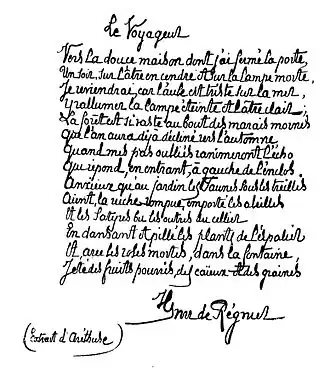 Le Voyageur
Vers la douce maison dont j'ai fermé la porte,
Un soir, sur l'âtre en cendre et sur la lampe morte,
Je reviendrai, car l'aube est triste sur la mer,
Y rallumer la lampe éteinte et l'âtre clair;
La forêt est si vaste au bout des marais mornes
que l'an aura déjà décliné vers l'automne
Quand mes pas oubliés ranimeront l'écho
Qui répond, en entrant, à gauche de l'enclos.
Anxieux qu'au jardin les Faunes sous les treilles
Aient, la ruche rompue, emporté les abeilles
Et les Satyres bu les outres du cellier
En dansant et pillé les plants de l'espalier
Et, avec les roses mortes, dans la fontaine,
Jeté des fruits pourris, des caïeux et des graines
Henri de Régnier
(Extrait d'Aréthuse)